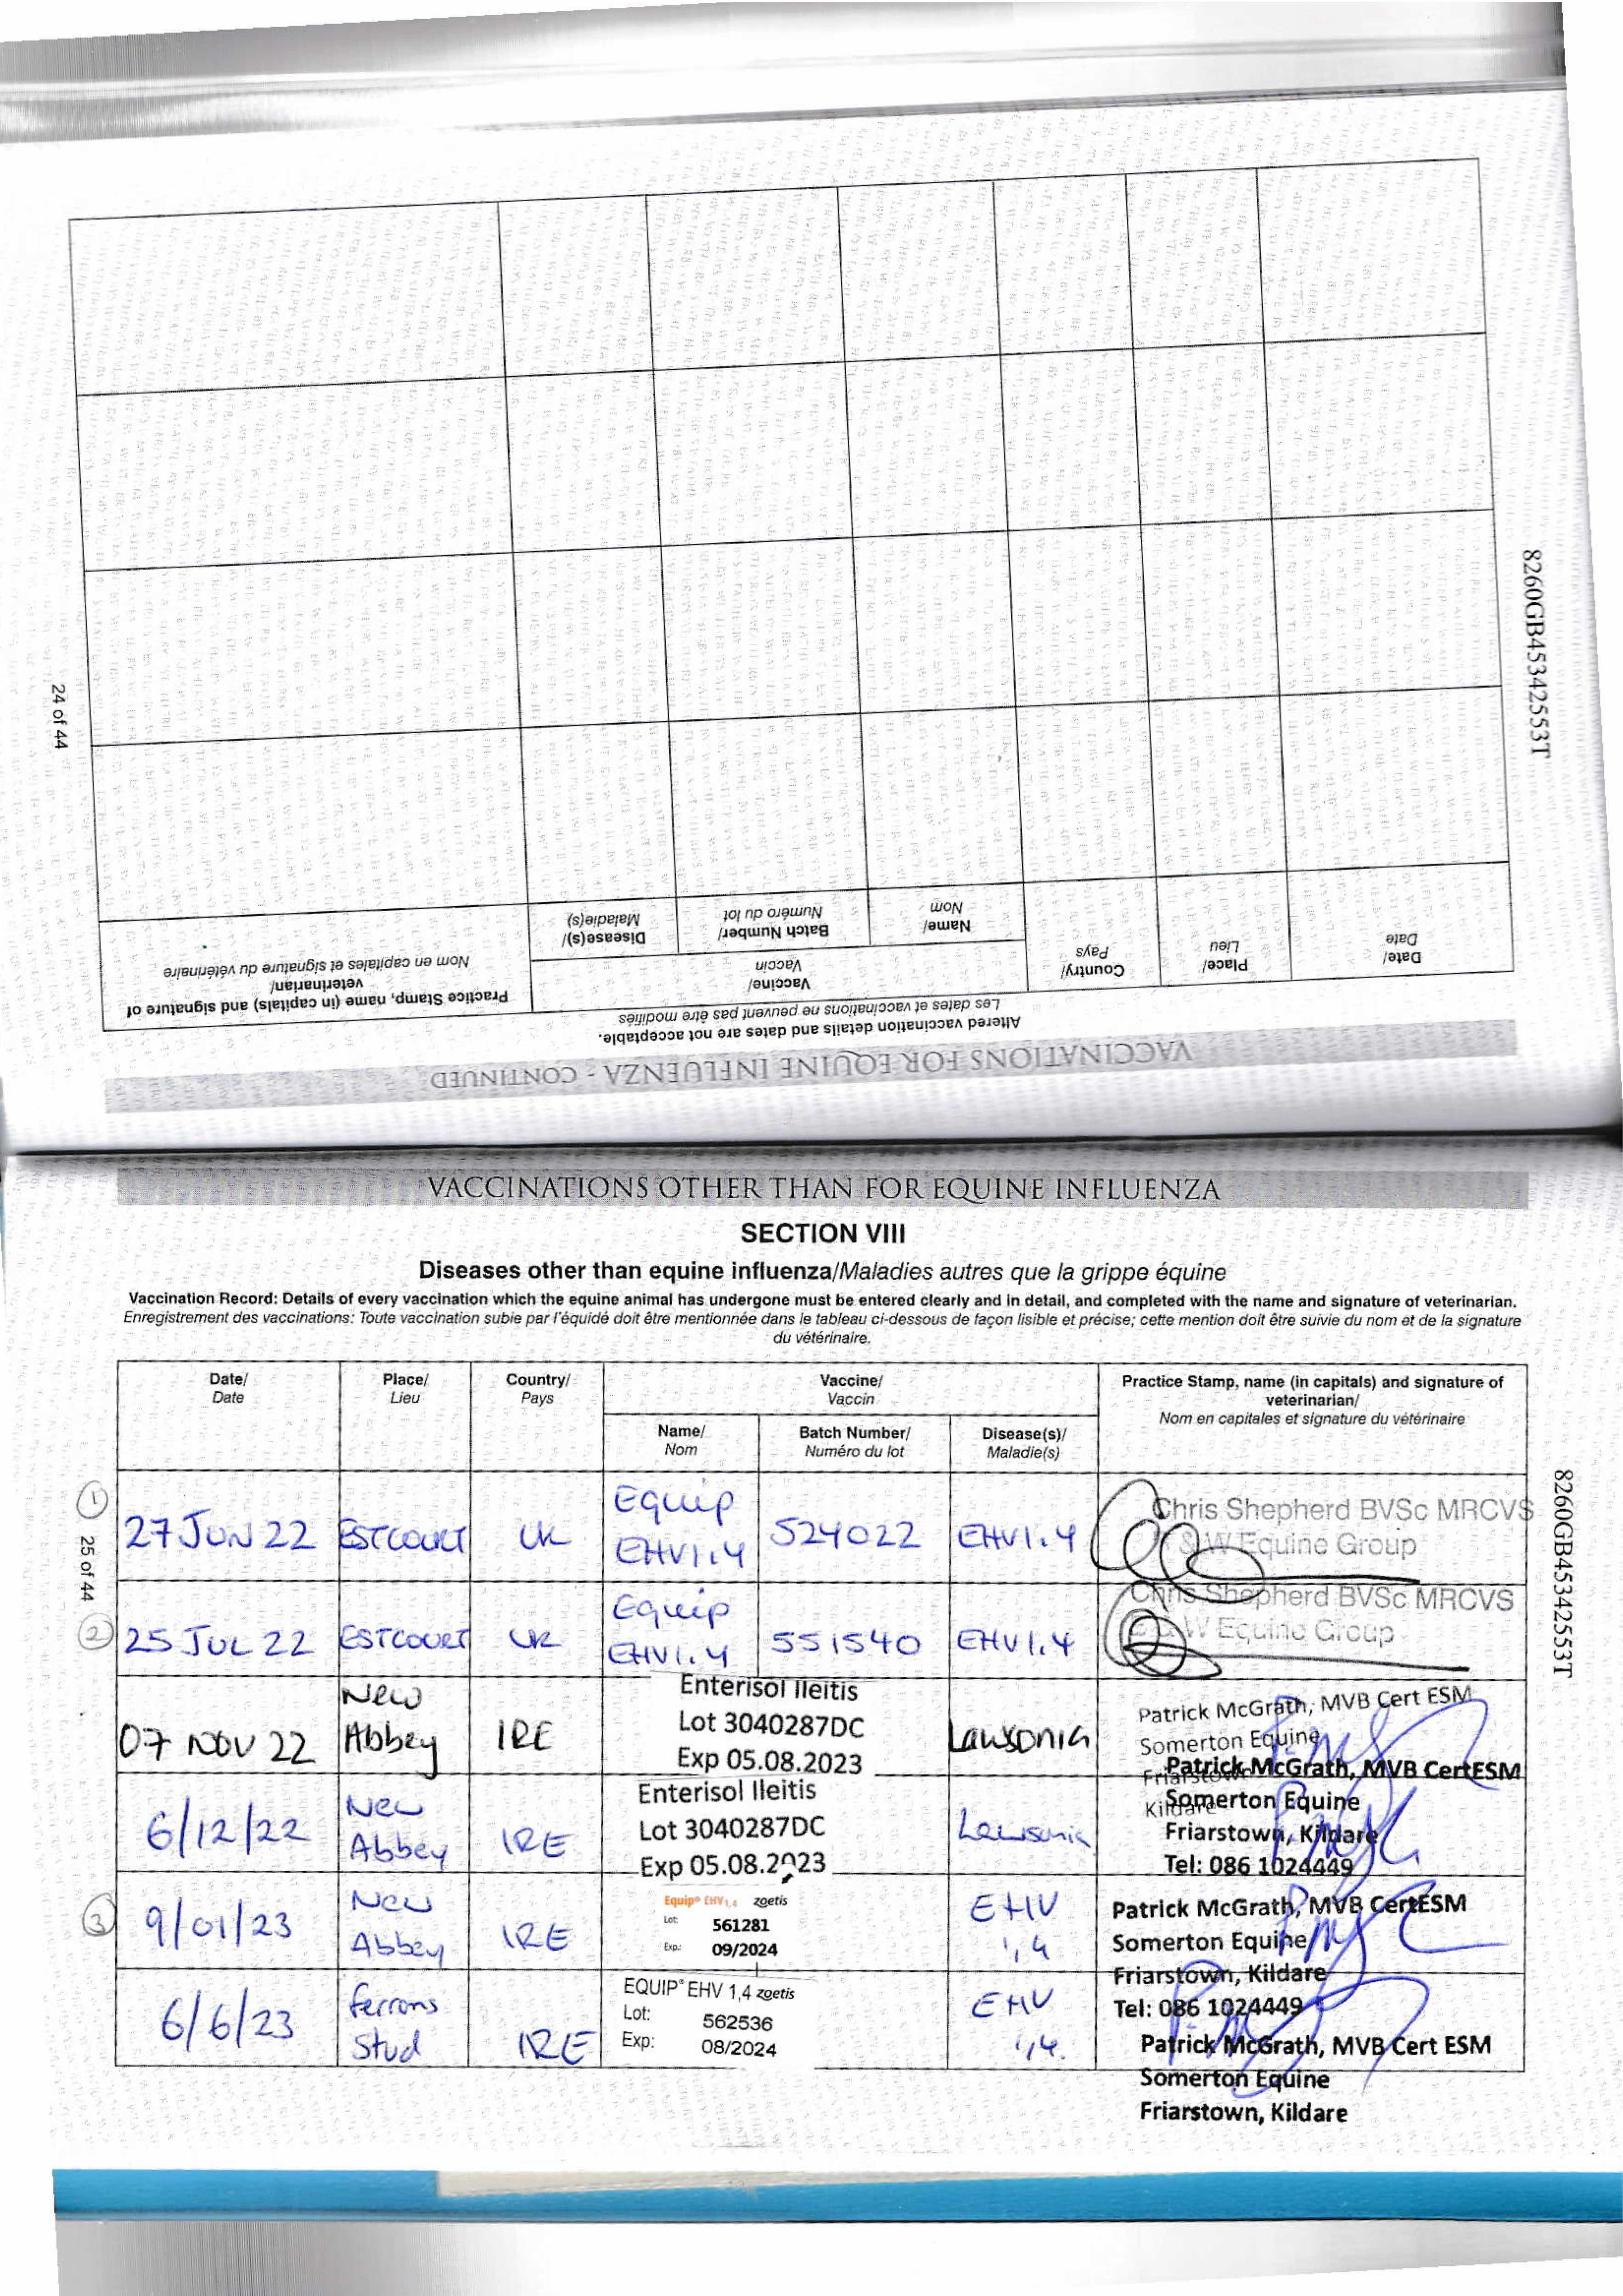 VACCINATIONS FOR EQUINE INFLUENZA - CONTINUED
Altered vaccination details and dates are not acceptable.
Les dates et vaccinations ne peuvent pas être modifiés
Date/
Date
Place/
Lieu
Country/
Pays
Vaccine/
Vaccin
Name/
Nom
Batch Number/
Numéro du lot
Disease(s)/
Maladie(s)
Practice Stamp, name (in capitals) and signature of
veterinarian/
Nom en capitales et signature du vétérinaire
24 of 44
8260GB45342553T
VACCINATIONS OTHER THAN FOR EQUINE INFLUENZA
SECTION VIII
Diseases other than equine influenza/Maladies autres que la grippe équine
Vaccination Record: Details of every vaccination which the equine animal has undergone must be entered clearly and in detail, and completed with the name and signature of veterinarian.
Enregistrement des vaccinations: Toute vaccination subie par l'équidé doit être mentionnée dans le tableau ci-dessous de façon lisible et précise; cette mention doit être suivie du nom et de la signature
du vétérinaire.
Date/
Date
Place/
Lieu
Country/
Pays
Vaccine/
Vaccin
Name/
Nom
Batch Number/
Numéro du lot
Disease(s)/
Maladie(s)
Practice Stamp, name (in capitals) and signature of
veterinarian/
Nom en capitales et signature du vétérinaire
1
27 JUN 22 ESTCOURT UK
Equip
EHV1.4
524022 EHV1.4
Chris Shepherd BVSc MRCVS
W Equine Group
2
25 JUL 22 ESTCOURT UK
Equip
EHV1.4
551540 EHV1.4
Chris Shepherd BVSc MRCVS
W Equine Group
07 NOV 22
New
Abbey
IRE
Enterisol Ileitis
Lot 3040287DC
Exp 05.08.2023
Lawsonia
Patrick McGrath, MVB Cert ESM
Somerton Equine
Friarstown
Kildare
6/12/22
New
Abbey
IRE
Enterisol Ileitis
Lot 3040287DC
Exp 05.08.2023
Lawsonia
Patrick McGrath, MVB CertESM
Somerton Equine
Friarstown, Kildare
Tel: 086 1024449
3
9/01/23
New
Abbey
IRE
Equip® EHV 1,4 zoetis
Lot: 561281
Exp.: 09/2024
EHV
1,4
Patrick McGrath, MVB CertESM
Somerton Equine
Friarstown, Kildare
Tel: 086 1024449
6/6/23
Ferrans
Stud
IRE
EQUIP® EHV 1,4 zoetis
Lot: 562536
Exp: 08/2024
EHV
1,4.
Patrick McGrath, MVB Cert ESM
Somerton Equine
Friarstown, Kildare
25 of 44
8260GB45342553T